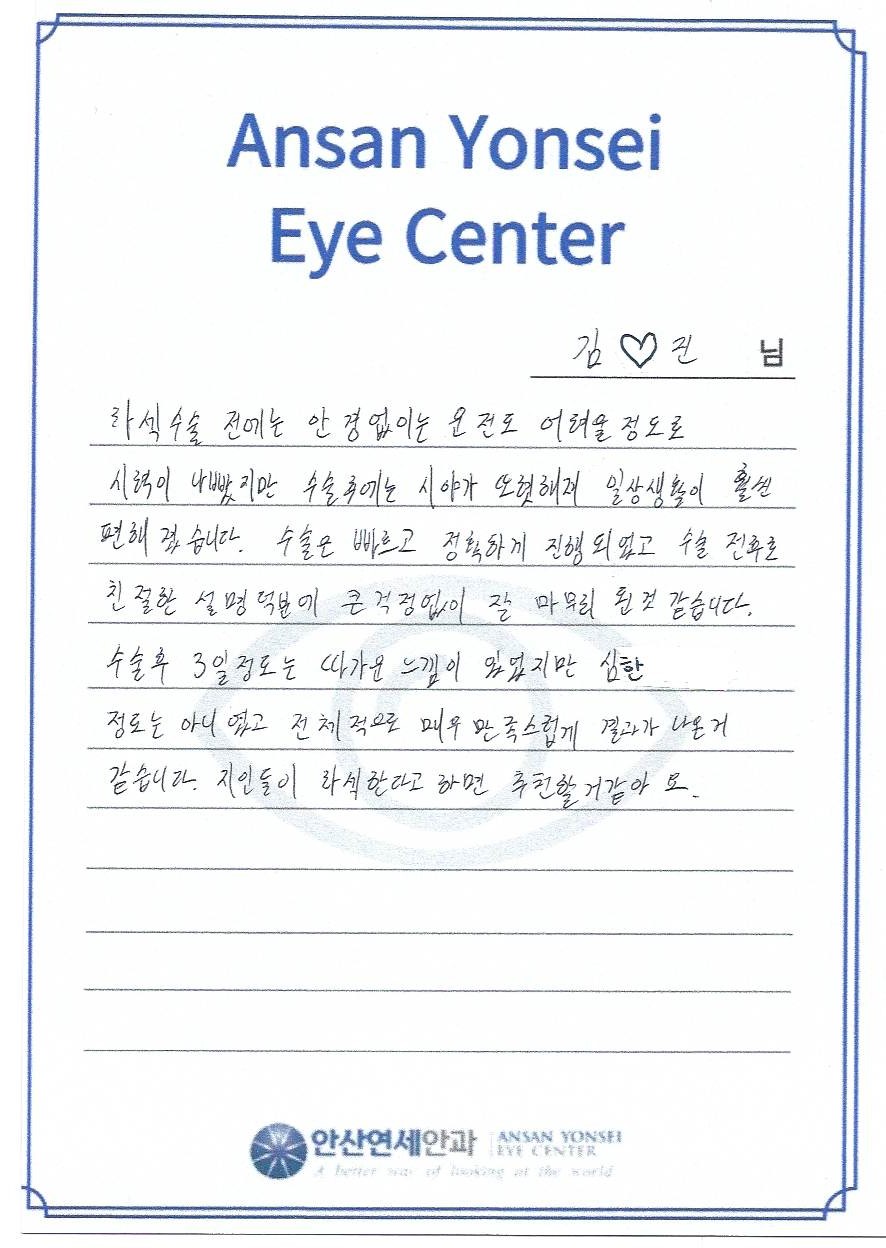 Ansan Yonsei
Eye Center
김♡진 님
라섹수술 전에는 안경없이는 운전도 어려울정도로
시력이 나빴지만 수술후에는 시야가 또렷해져 일상생활이 훨씬
편해졌습니다. 수술은 빠르고 정확하게 진행되었고 수술 전후로
친절한 설명덕분에 큰걱정없이 잘 마무리 된것 같습니다.
수술후 3일정도는 따가운 느낌이 있었지만 심한
정도는 아니였고 전체적으로 매우 만족스럽게 결과가 나온거
같습니다. 지인들이 라식한다고 하면 추천할거같아요.
안산연세안과 ANSAN YONSEI
EYE CENTER
A better way of looking at the world